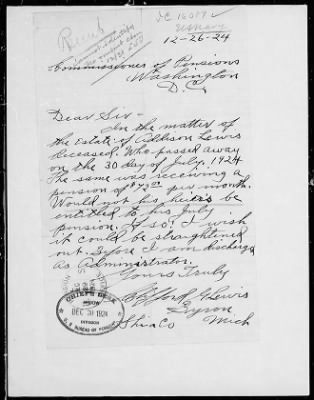 I C
U S Navy
12-26-24
Commissioner of Pensions
Washington
D.C.
Dear Sir -
In the matter of
the Estate of Addison Lewis
Deceased. Who passed away
on the 30 day of July, 1924
The same was receiving a
pension of $72 00 per month.
Would not his heirs be
entitled to his July
pension. If so! I wish
it could be straightened
out. Before I am discharged
as Administrator.
Yours Truly
Clifford Lewis
Byron
Shia Co Mich
CHIEF'S DESK
DEC 30 1924
DIVISION
U.S. BUREAU OF PENSIONS